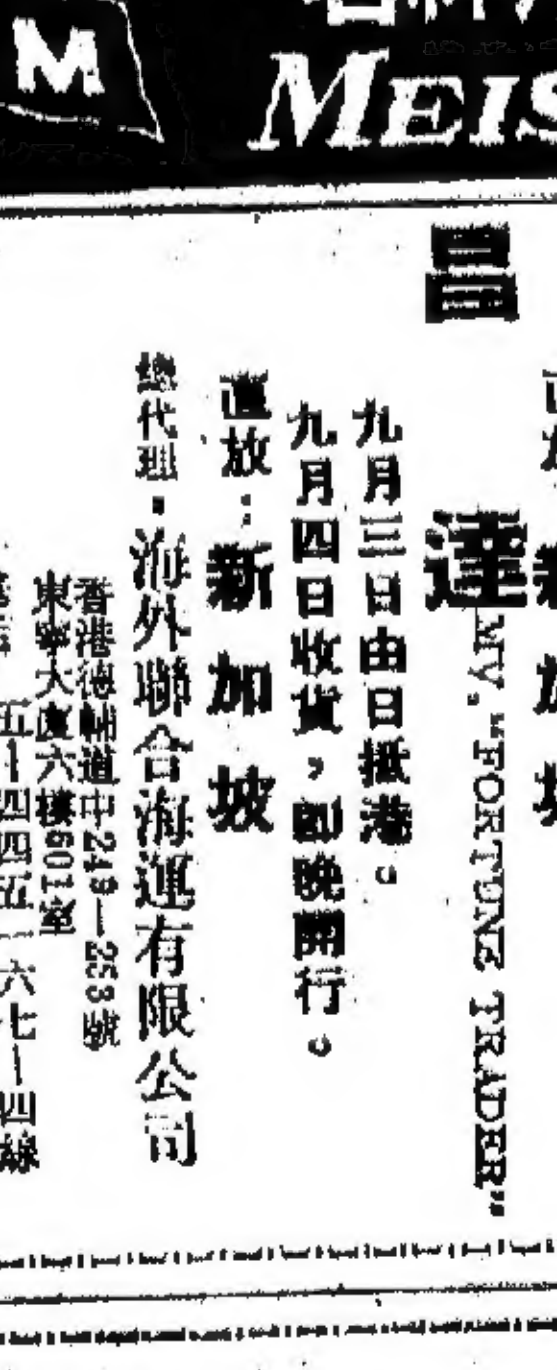 M
MEIS
昌達 MV. "FORTUNE TRADER"
九月三日由日抵港。
九月四日收貨，即晚開行。
直放：新加坡
總代理：海外聯合海運有限公司
香港德輔道中249—253號
東寧大廈六樓601室
五—四四五一六七—四線